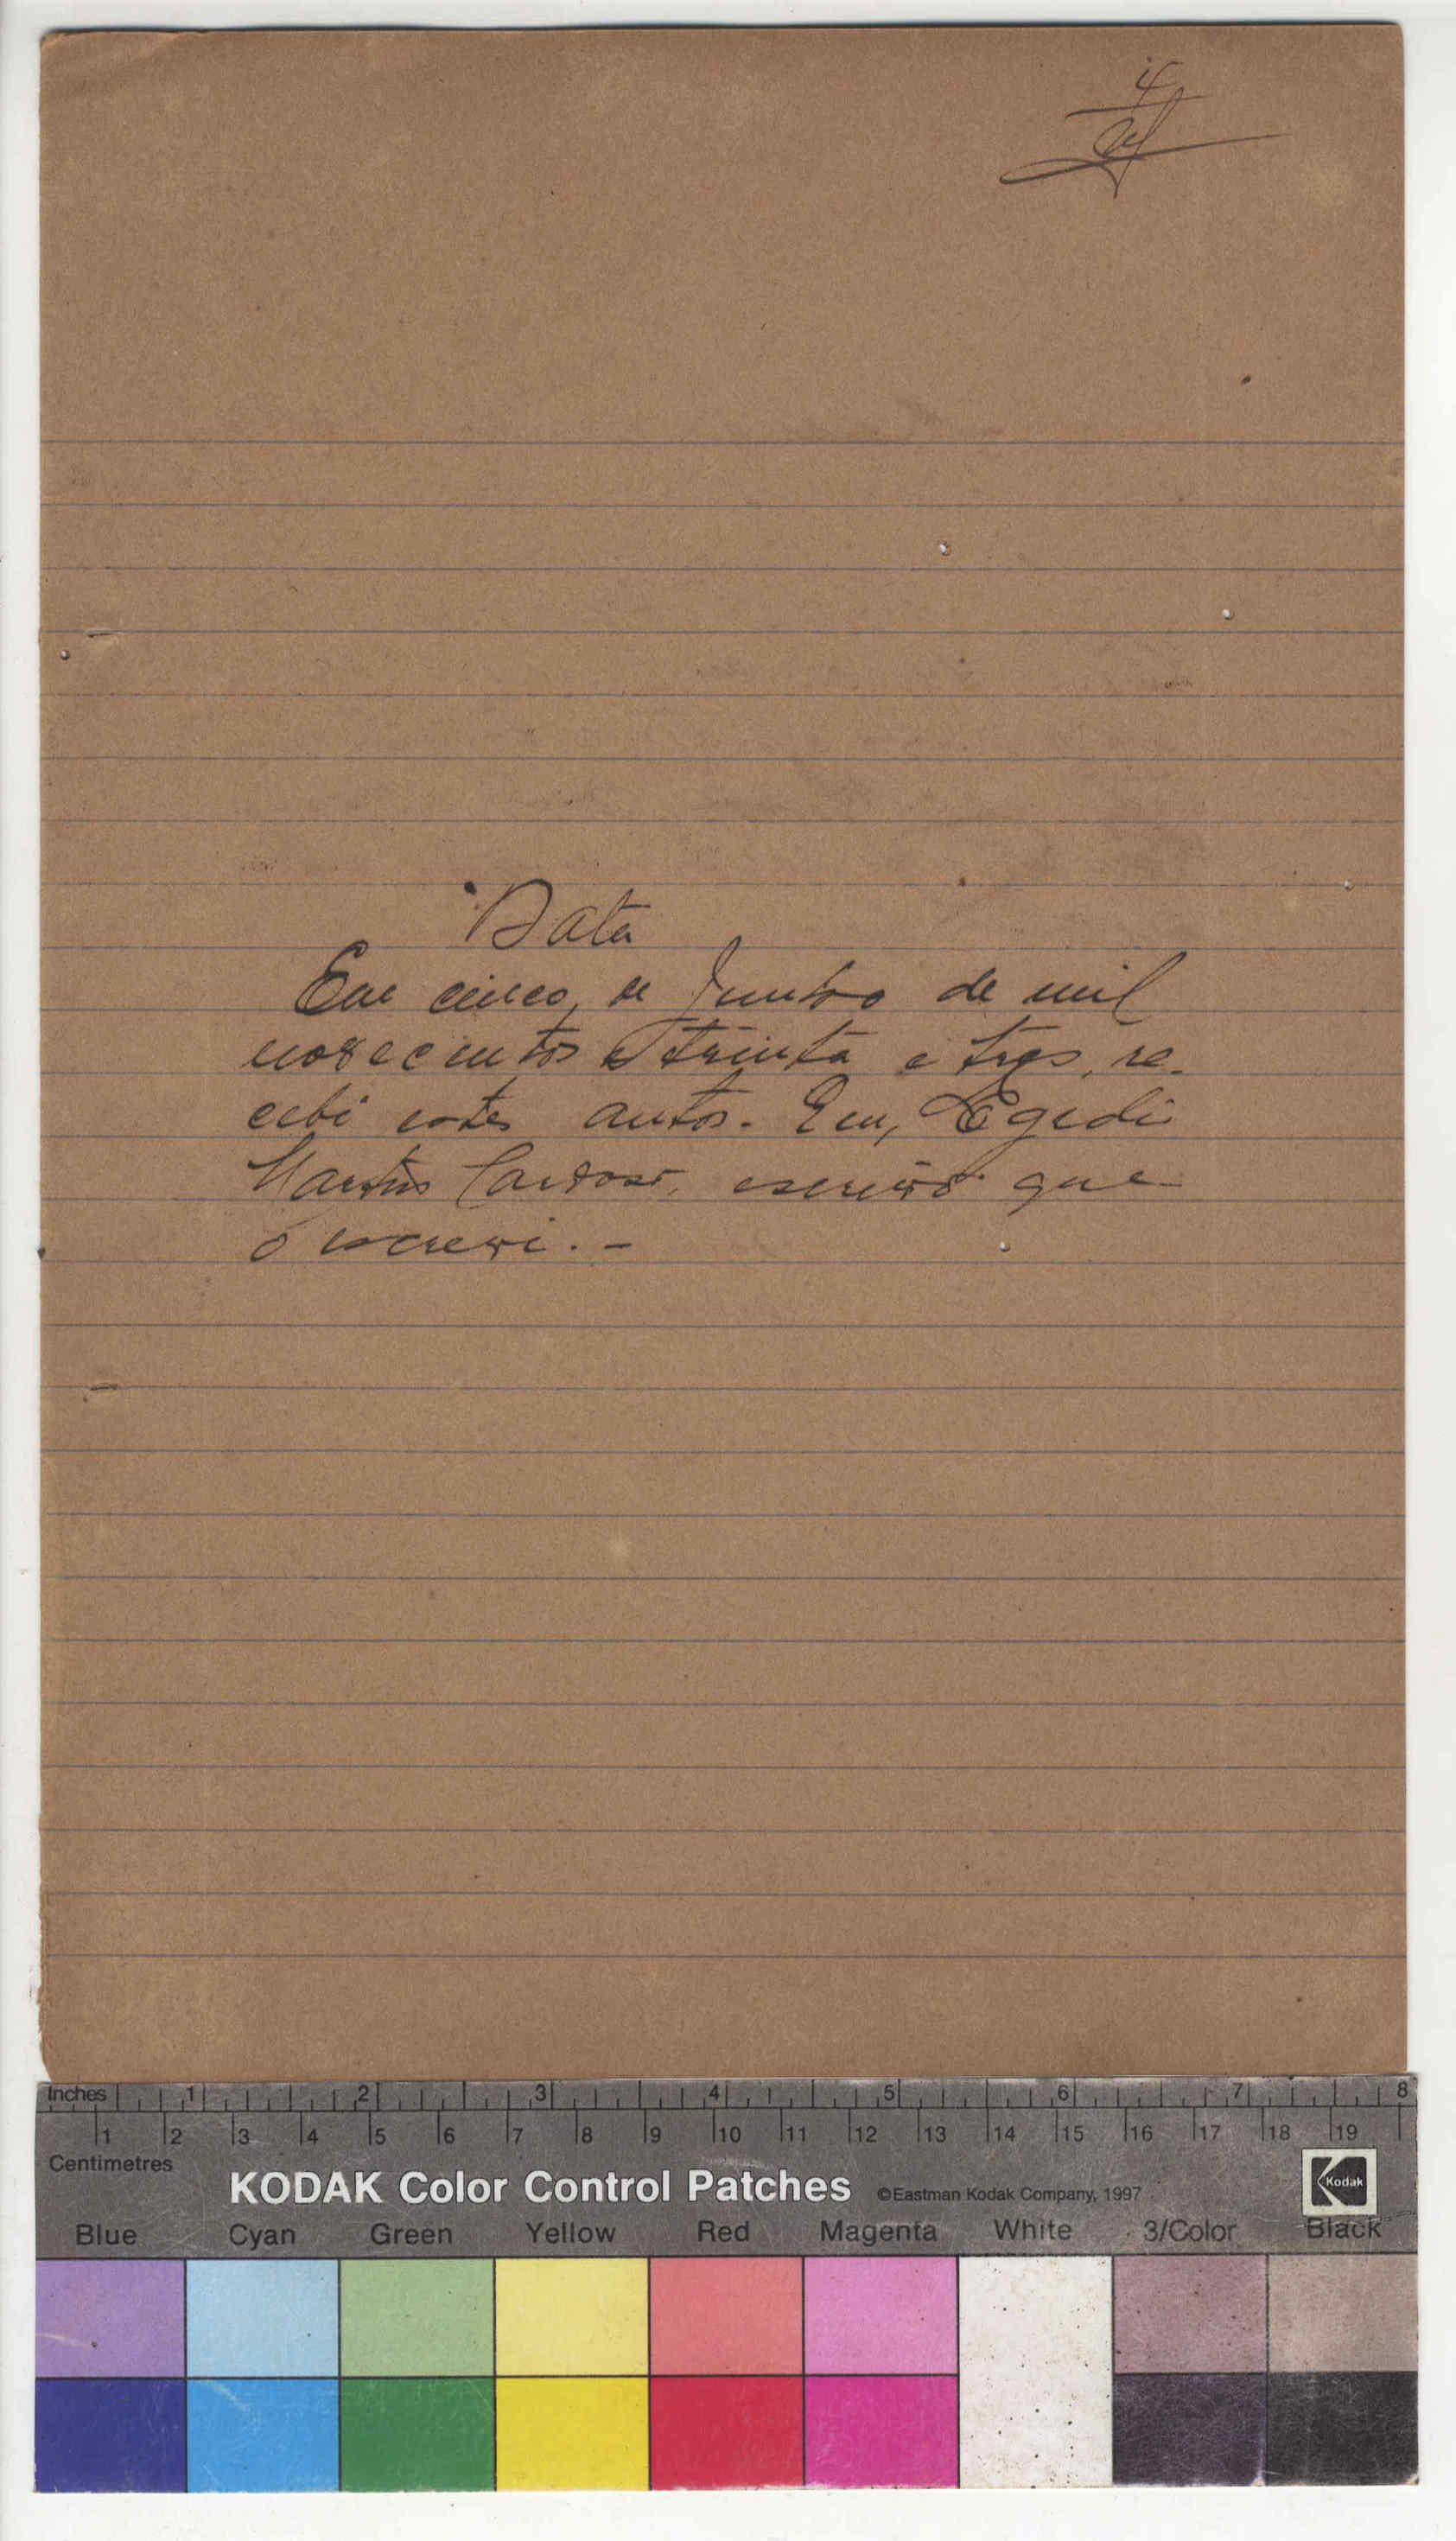 4
Data
Em cinco de Junho de mil
novecentos e trinta e tres, re-
cebi estes autos. Eu, Egidio
Martins Cardoso, escrivão que
o escrevi. -
Inches 1 2 3 4 5 6 7 8
1 2 3 4 5 6 7 8 9 10 11 12 13 14 15 16 17 18 19
Centimetres
KODAK Color Control Patches ©Eastman Kodak Company, 1997 Kodak
Blue Cyan Green Yellow Red Magenta White 3/Color Black